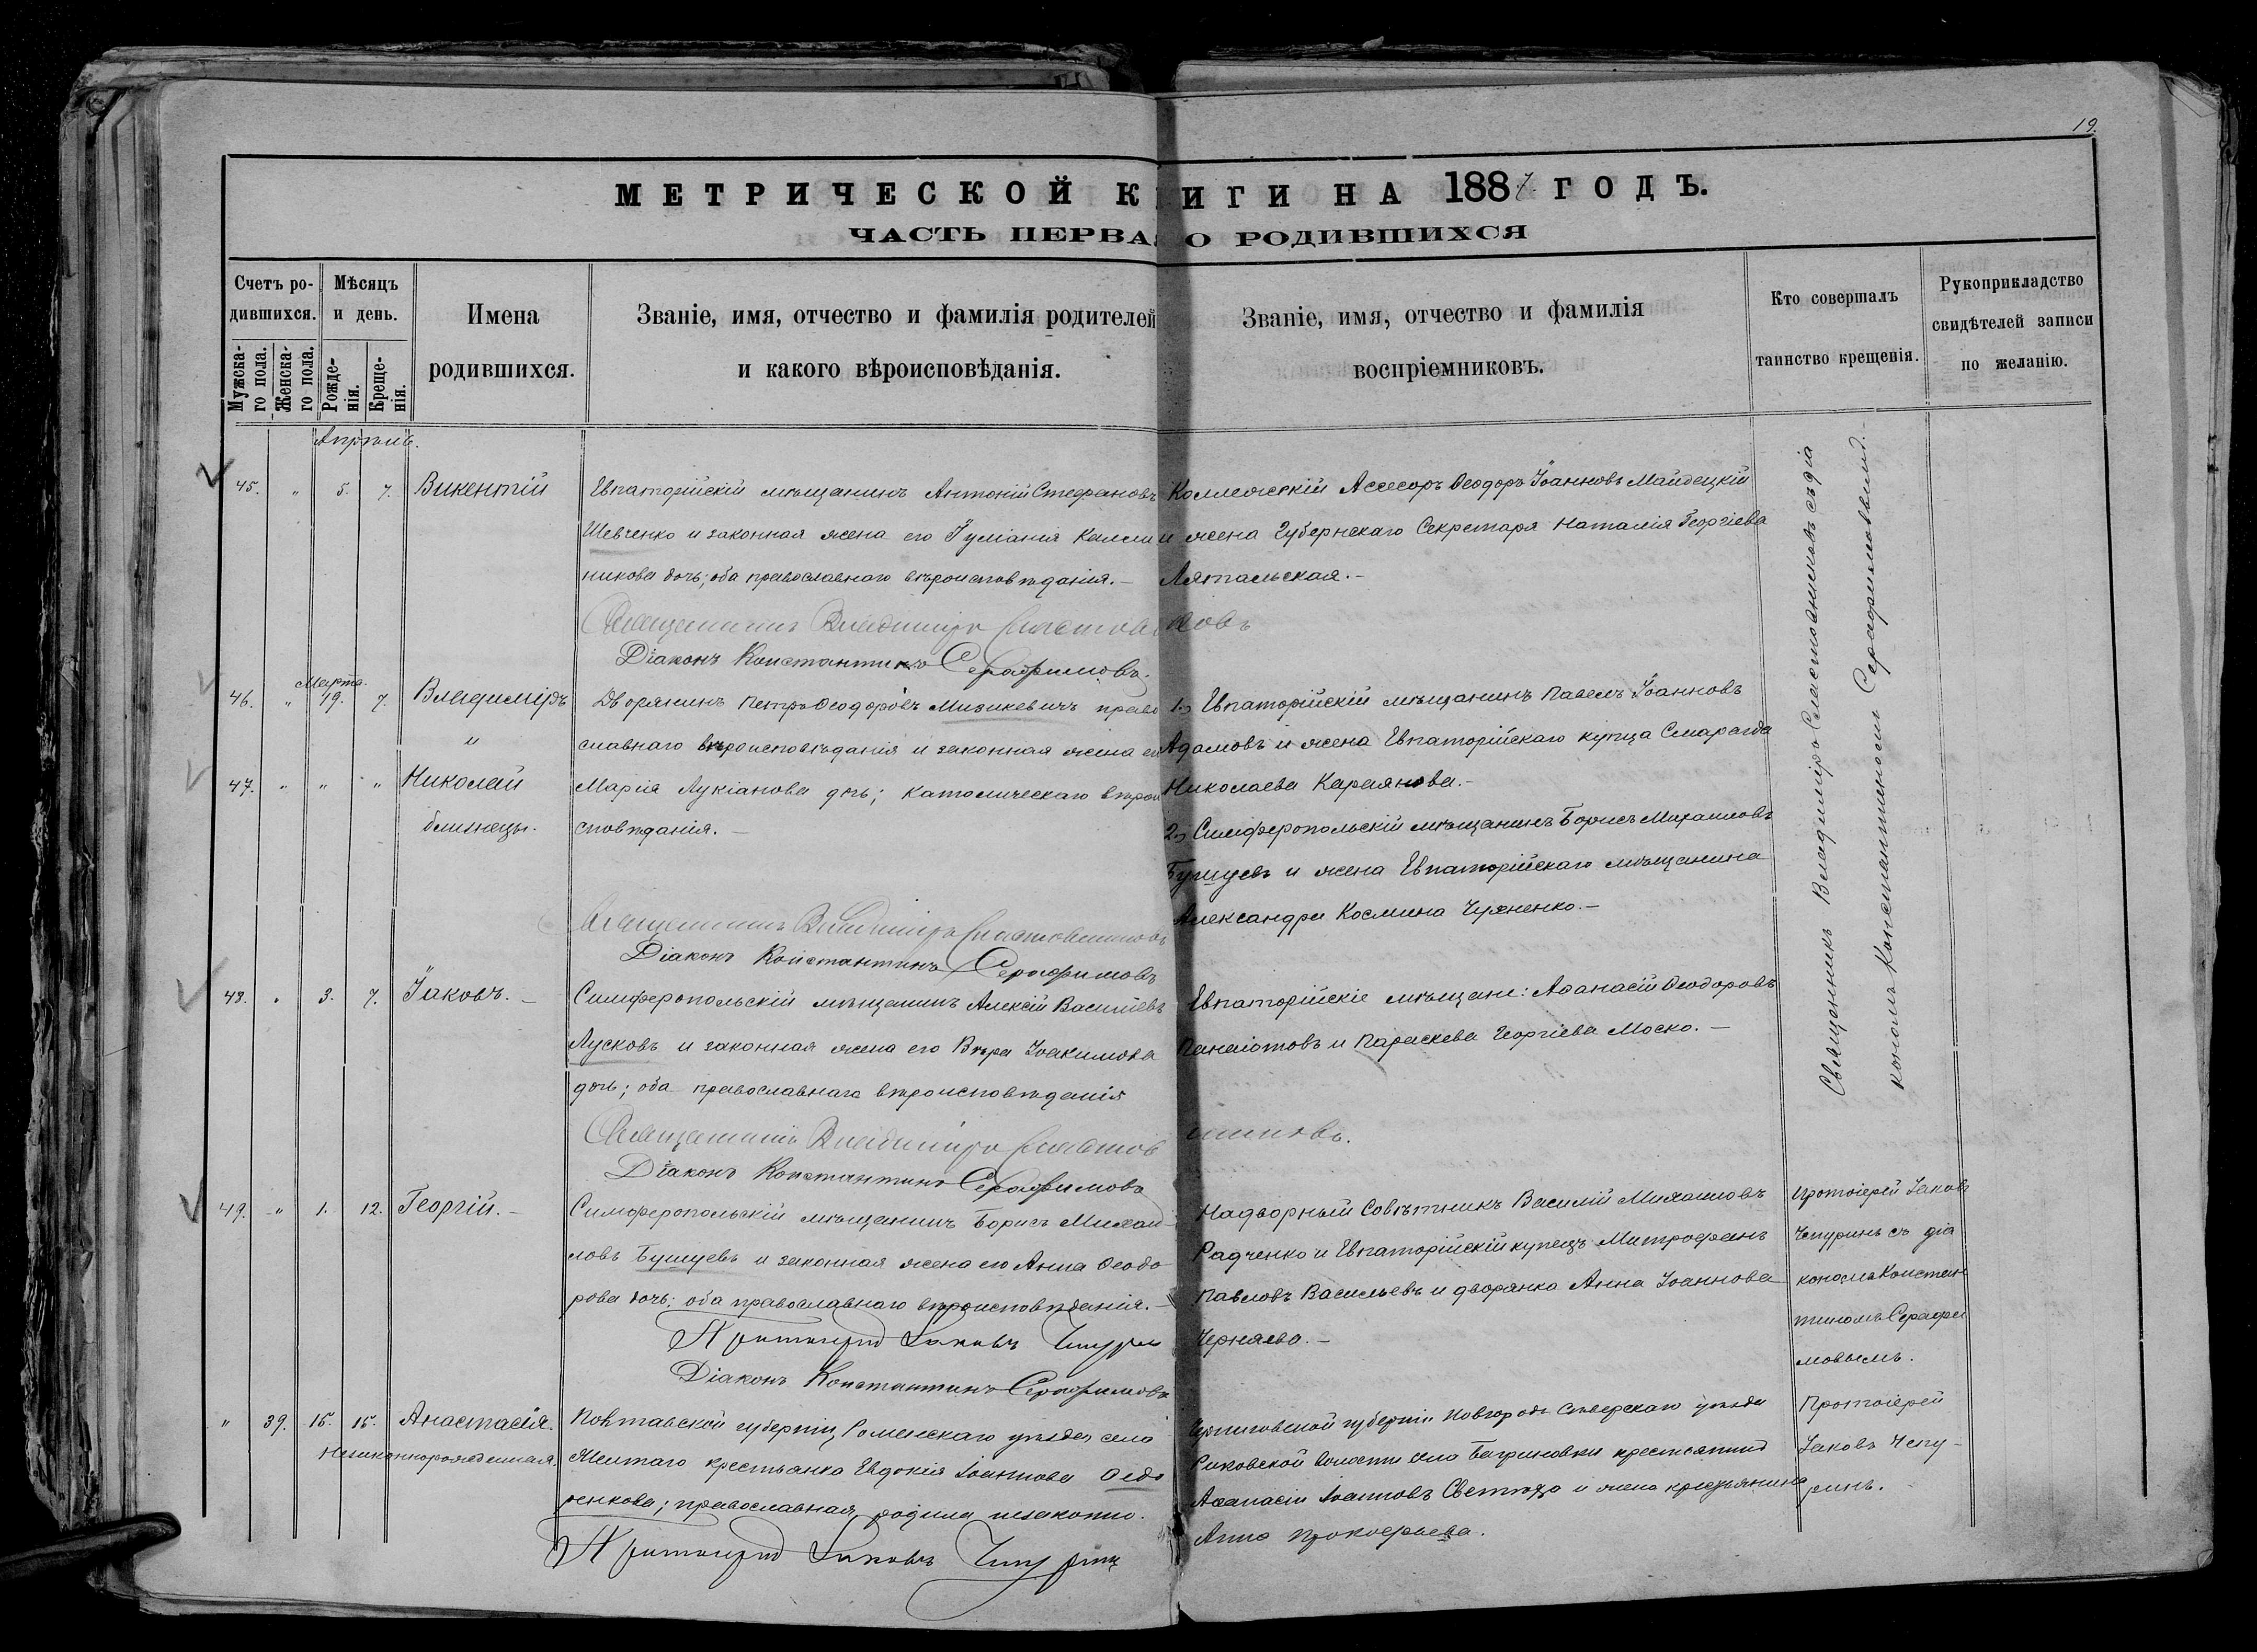 19.
МЕТРИЧЕСКОЙ К ИГИ НА 1887 ГОДЪ.
ЧАСТЬ ПЕРВАЯ О РОДИВШИХСЯ
Счетъ ро-
дившихся.
Мужска-
го пола.
Женска-
го пола.
Мѣсяцъ
и день.
Рожде-
нія.
Креще-
нія.
Имена
родившихся.
Званіе, имя, отчество и фамилія родителей
и какого вѣроисповѣданія.
Званіе, имя, отчество и фамилія
воспріемниковъ.
Кто совершалъ
таинство крещенія.
Рукоприкладство
свидѣтелей записи
по желанію.
Апрѣль.
45. " 5. 7. Викентій
Евпаторійскій мѣщанинъ Антоній Стефановъ
Шевченко и законная жена его Іуліанія Калли
никова дочь; оба православнаго вѣроисповѣданія.-
Священникъ Владиміръ
Діаконъ Константинъ Серафимовъ.
Коллежскій Асессоръ Ѳеодоръ Іоанновъ Майдецкій
и жена Губернскаго Секретаря Наталія Георгіева
Лятальская.-
Марта.
46. " 19. 7. Владиміръ
и
47. " " " Николай
близнецы.
Дворянинъ Петръ Ѳеодоровъ Мизикевичъ право
славнаго вѣроисповѣданія и законная жена его
Марія Лукіанова дочь; католическаго вѣрои
сповѣданія.-
Священникъ Владиміръ
Діаконъ Константинъ Серафимовъ
1.) Евпаторійскій мѣщанинъ Павелъ Іоанновъ
Адамовъ и жена Евпаторійскаго купца Смарагда
Николаева Караянова.-
2.) Симферопольскій мѣщанинъ Борисъ Михаиловъ
Бушуевъ и жена Евпаторійскаго мѣщанина
Александра Космина Чуяненко.-
48. " 3. 7. Іаковъ.-
Симферопольскій мѣщанинъ Алексій Василіевъ
Лусковъ и законная жена его Вѣра Іоакимова
дочь; оба православнаго вѣроисповѣданія
Священникъ Владиміръ
Діаконъ Константинъ Серафимовъ
Евпаторійскіе мѣщане: Аѳанасій Ѳеодоровъ
Панаіотовъ и Параскева Георгіева Моско.-
Священникъ Владиміръ Сластовниковъ съ діа
кономъ Константиномъ Серафимовымъ.-
49. " 1. 12. Георгій.-
Симферопольскій мѣщанинъ Борисъ Михаи
ловъ Бушуевъ и законная жена его Анна Ѳеодо
рова дочь; оба православнаго вѣроисповѣданія.-
Протоіерей Іаковъ Чепуринъ
Діаконъ Константинъ Серафимовъ
Надворный Совѣтникъ Василій Михаиловъ
Радченко и Евпаторійскій купецъ Митрофанъ
Павловъ Васильевъ и дворянка Анна Іоаннова
Черняева.-
Протоіерей Іаковъ
Чепуринъ съ діа
кономъ Констан
тиномъ Серафи
мовымъ.
" 39. 15. 15. Анастасія.
Незаконнорожденная.
Полтавской губерніи, Роменскаго уѣзда села
Желтаго крестьянка Евдокія Іоаннова Ѳедо
ренкова; православная, родила незаконно.
Протоіерей Іаковъ Чепуринъ
Черниговской губерніи Новгородъ Сѣверскаго уѣзда
Рыковской волости села Багриновки крестьянинъ
Аѳанасій Іоанновъ и жена крестьянина
Анна Прокофьева.
Протоіерей
Іаковъ Чепу-
ринъ.